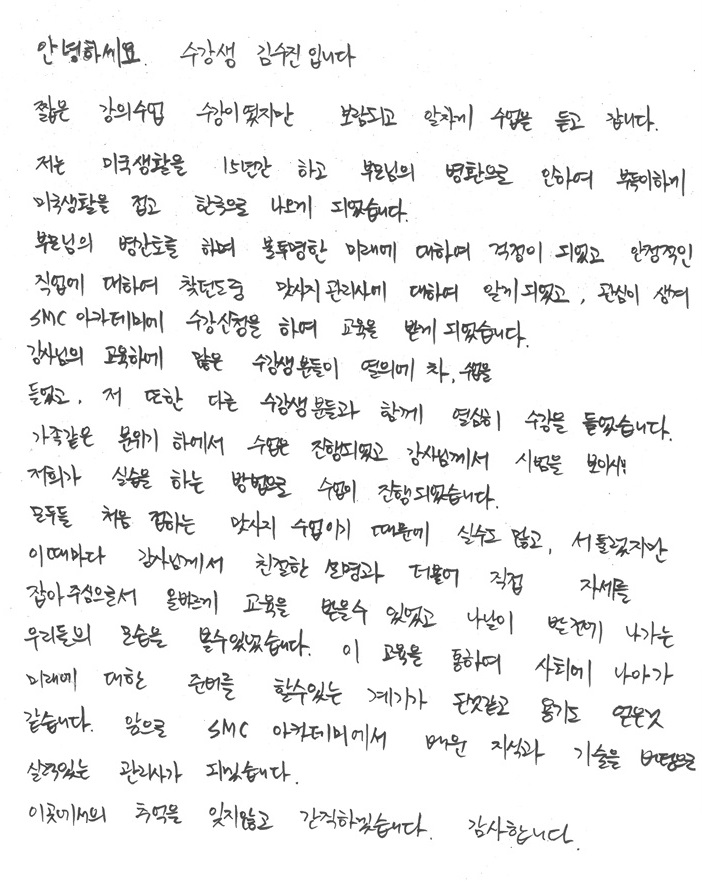 안녕하세요. 수강생 김수진입니다
짧은 강의수업 수강이였지만 보람되고 알차게 수업을 듣고 갑니다.
저는 미국생활을 15년간 하고 부모님의 병환으로 인하여 부득이하게
미국생활을 접고 한국으로 나오게 되었습니다.
부모님의 병간호를 하며 불투명한 미래에 대하여 걱정이 되었고 안정적인
직업에 대하여 찾던도중 맛사지관리사에 대하여 알게되었고, 관심이 생겨
SMC 아카데미에 수강신청을 하여 교육을 받게 되었습니다.
강사님의 교육하에 많은 수강생분들이 열의에 차, 수업을
들었고, 저 또한 다른 수강생분들과 함께 열심히 수강을 들었습니다.
가족같은 분위기 하에서 수업은 진행되었고 강사님께서 시범을 보이시면
저희가 실습을 하는 방법으로 수업이 진행되었습니다.
모두들 처음 접하는 맛사지 수업이기 때문에 실수도 많고, 서툴렀지만
이때마다 강사님께서 친절한 설명과 더불어 직접 자세를
잡아주심으로서 올바르게 교육을 받을수 있었고 나날이 발전해 나가는
우리들의 모습을 볼수있었습니다. 이 교육을 통하여 사회에 나아가
미래에 대한 준비를 할수있는 계기가 된것같고 용기도 얻은것
같습니다. 앞으로 SMC 아카데미에서 배운 지식과 기술을 바탕으로
실력있는 관리사가 되겠습니다.
이곳에서의 추억을 잊지않고 간직하겠습니다. 감사합니다.